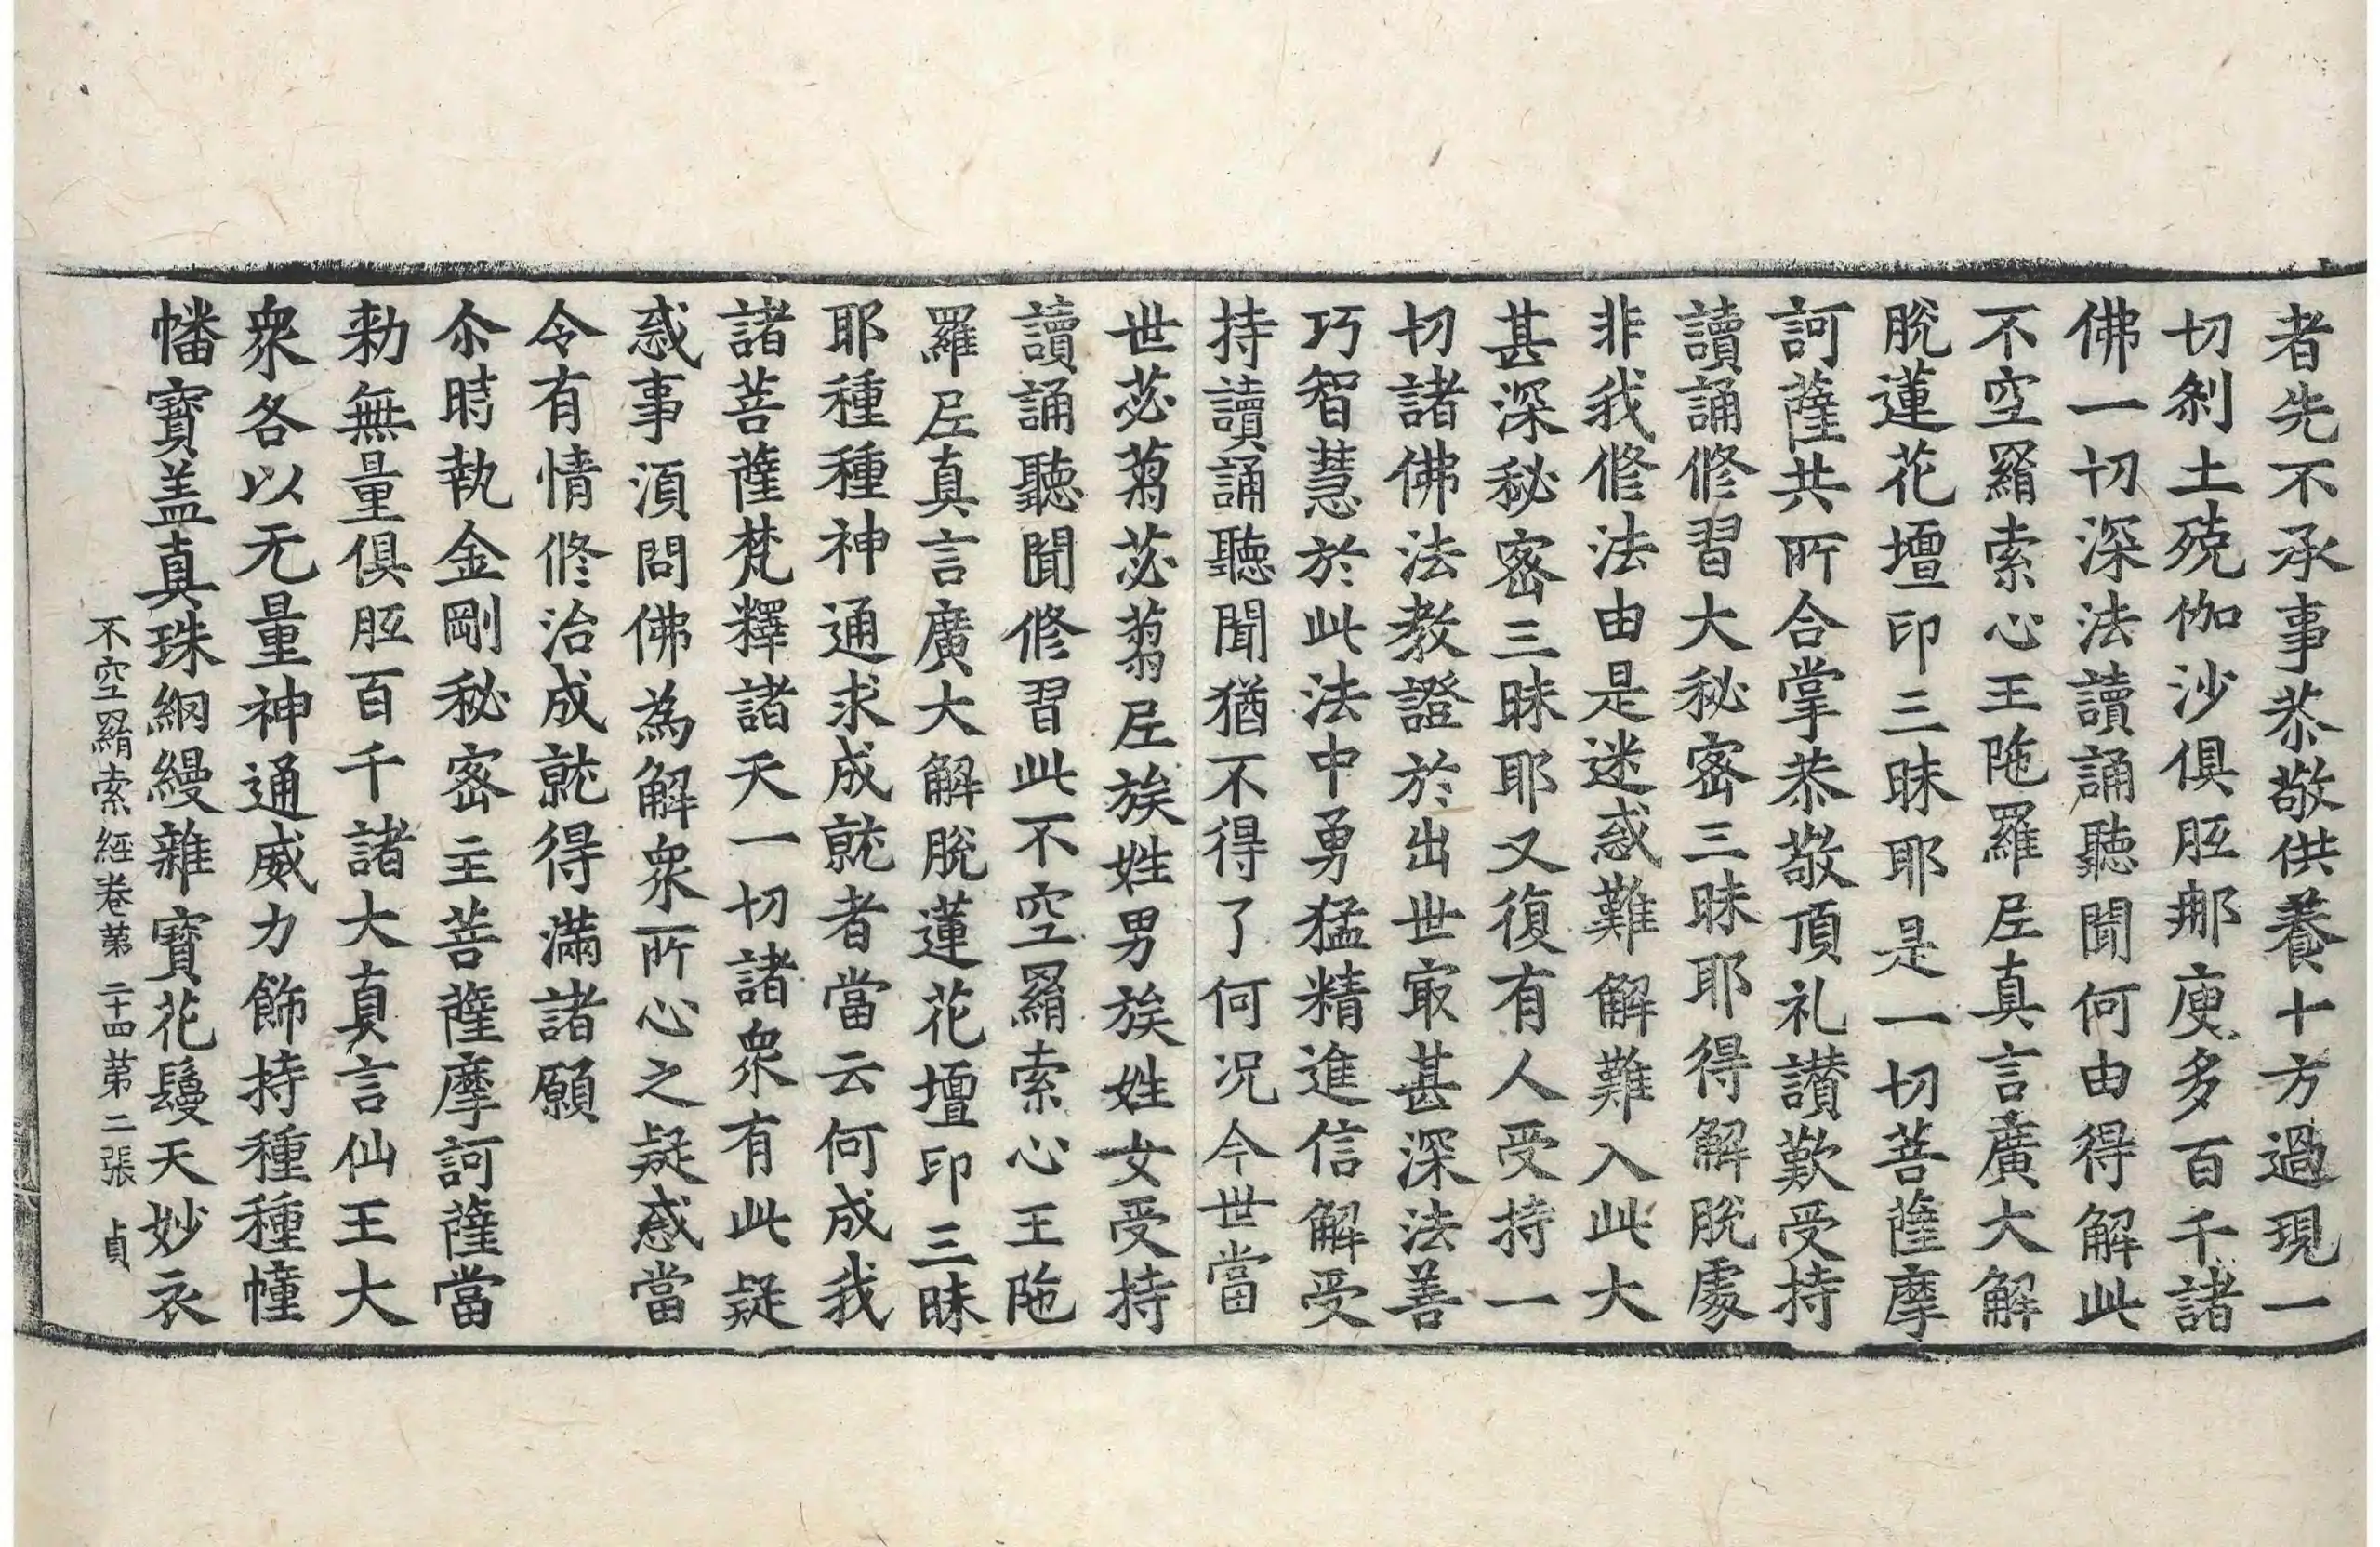 者先不承事恭敬供養十方過現一
切刹土殑伽沙俱胝那庾多百千諸
佛一切深法讀誦聽聞何由得解此
不空羂索心王陁羅尼真言廣大解
脫蓮花壇印三昧耶是一切菩薩摩
訶薩共所合掌恭敬頂礼讃歎受持
讀誦修習大秘密三昧耶得解脫處
非我修法由是迷惑難解難入此大
甚深秘密三昧耶又復有人受持一
切諸佛法教證於出世㝡甚深法善
巧智慧於此法中勇猛精進信解受
持讀誦聽聞猶不得了何況今世當
世苾蒭苾蒭尼族姓男族姓女受持
讀誦聽聞修習此不空羂索心王陁
羅尼真言廣大解脫蓮花壇印三昧
耶種種神通求成就者當云何成我
諸菩薩梵釋諸天一切諸衆有此疑
惑事湏問佛為解衆所心之疑惑當
令有情修治成就得滿諸願
尒時執金剛秘密主菩薩摩訶薩當
勑無量俱胝百千諸大真言仙王大
衆各以无量神通威力飾持種種幢
幡寶盖真珠網縵雜寶花鬘天妙衣
不空羂索經卷第二十四第二張 貞